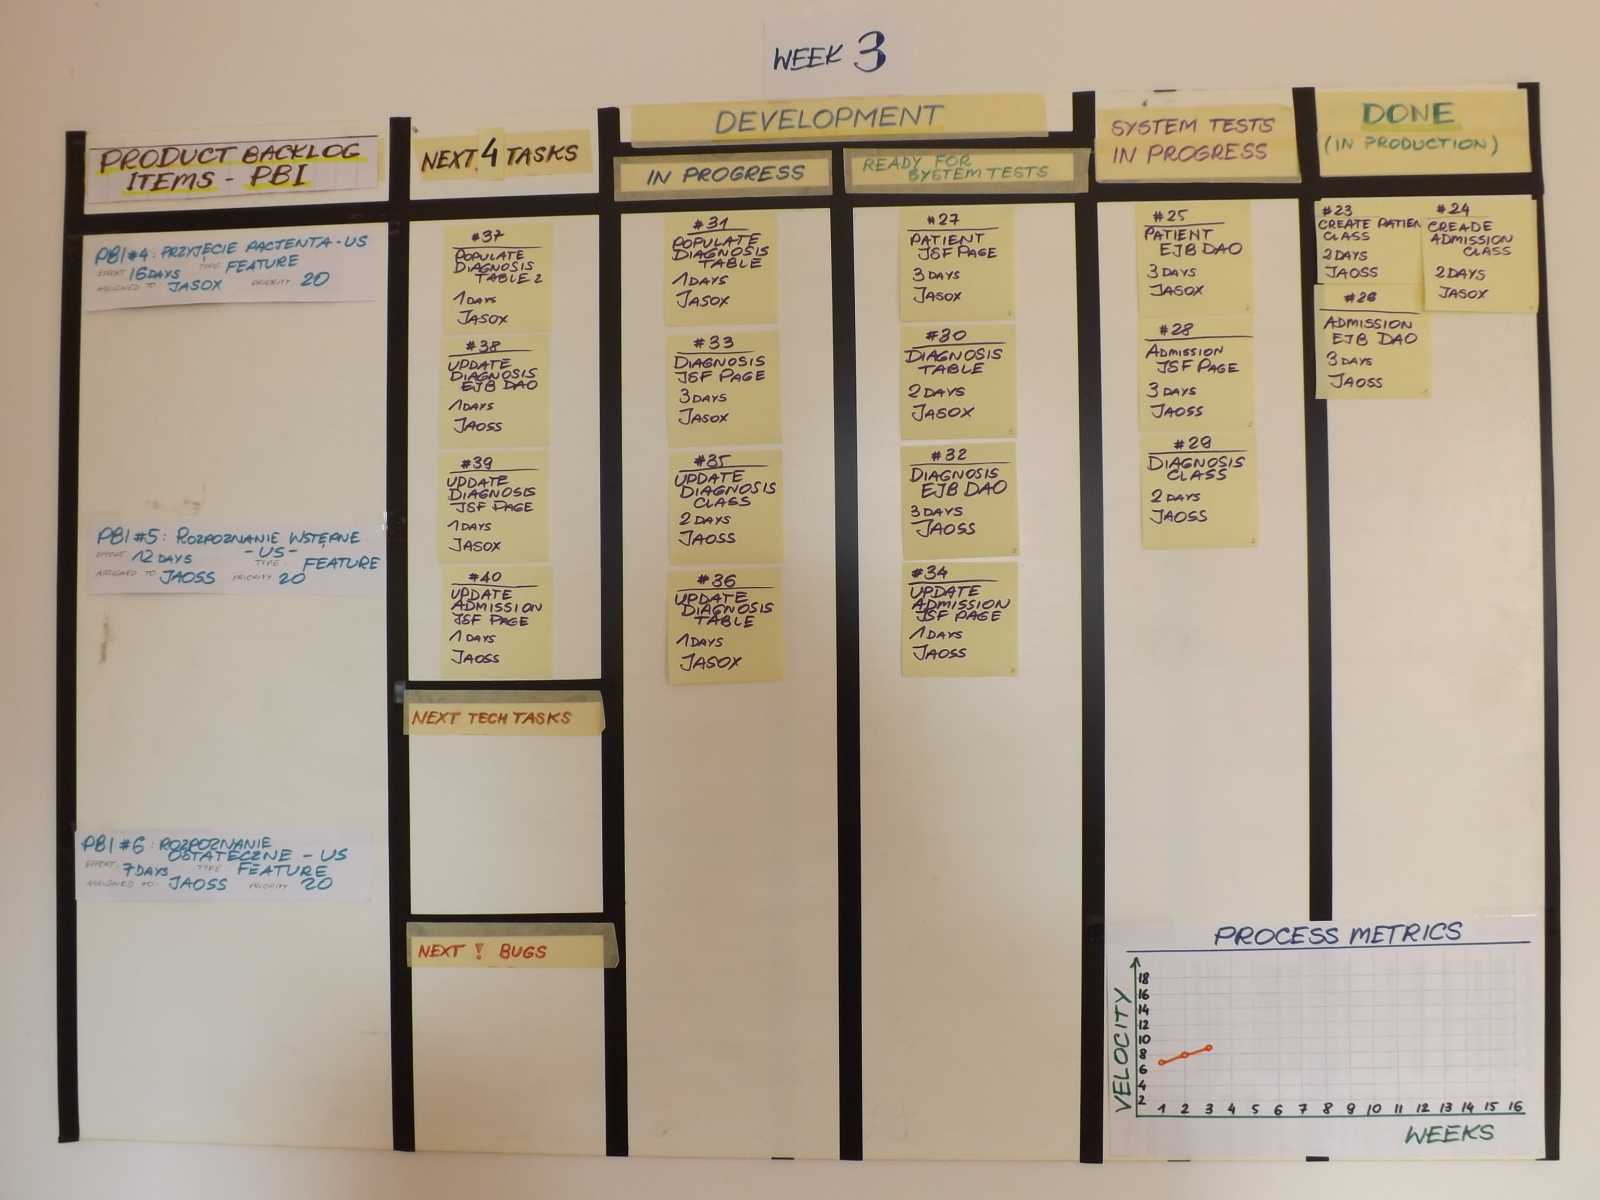 WEEK 3
PRODUCT BACKLOG
ITEMS - PBI
NEXT 4 TASKS
DEVELOPMENT
IN PROGRESS
READY FOR
SYSTEM TESTS
SYSTEM TESTS
IN PROGRESS
DONE
(IN PRODUCTION)
PBI #4: PRZYJĘCIE PACJENTA - US
EFFORT: 16 DAYS TYPE: FEATURE
ASSIGNED TO: JASOX PRIORITY 20
PBI #5: ROZPOZNANIE WSTĘPNE
- US -
EFFORT: 12 DAYS TYPE: FEATURE
ASSIGNED TO JAOSS PRIORITY 20
PBI #6: ROZPOZNANIE
OSTATECZNE - US
EFFORT: 7 DAYS TYPE FEATURE
ASSIGNED TO: JAOSS PRIORITY 20
#37
POPULATE
DIAGNOSIS
TABLE 2
1 DAYS
JASOX
#38
UPDATE
DIAGNOSIS
EJB DAO
1 DAYS
JAOSS
#39
UPDATE
DIAGNOSIS
JSF PAGE
1 DAYS
JASOX
#40
UPDATE
ADMISSION
JSF PAGE
1 DAYS
JAOSS
NEXT TECH TASKS
NEXT ! BUGS
#31
POPULATE
DIAGNOSIS
TABLE
1 DAYS
JASOX
#33
DIAGNOSIS
JSF PAGE
3 DAYS
JASOX
#35
UPDATE
DIAGNOSIS
CLASS
2 DAYS
JAOSS
#36
UPDATE
DIAGNOSIS
TABLE
1 DAYS
JASOX
#27
PATIENT
JSF PAGE
3 DAYS
JASOX
#30
DIAGNOSIS
TABLE
2 DAYS
JASOX
#32
DIAGNOSIS
EJB DAO
3 DAYS
JAOSS
#34
UPDATE
ADMISSION
JSF PAGE
1 DAYS
JAOSS
#25
PATIENT
EJB DAO
3 DAYS
JASOX
#28
ADMISSION
JSF PAGE
3 DAYS
JAOSS
#29
DIAGNOSIS
CLASS
2 DAYS
JAOSS
#23
CREATE PATIEN
CLASS
2 DAYS
JAOSS
#24
CREADE
ADMISSION
CLASS
2 DAYS
JASOX
#26
ADMISSION
EJB DAO
3 DAYS
JAOSS
PROCESS METRICS
VELOCITY
18
16
14
12
10
8
6
4
2
1 2 3 4 5 6 7 8 9 10 11 12 13 14 15 16
WEEKS